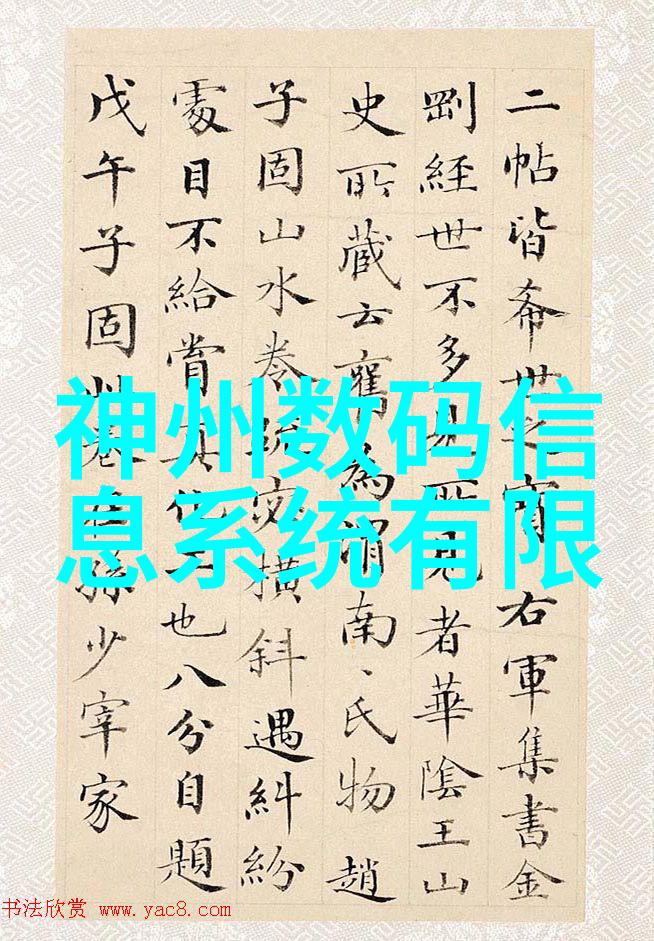 二帖皆希世之寳右軍集書金
剛經世不多見所見者華陰王山
史所藏云舊為渭南、氏物趙
子固山水卷疏密横斜遇糾紛
處目不給賞也八分自題
戊午子固孫少宰家
神州数码信
息系统有限
书法欣赏 www.yac8.com